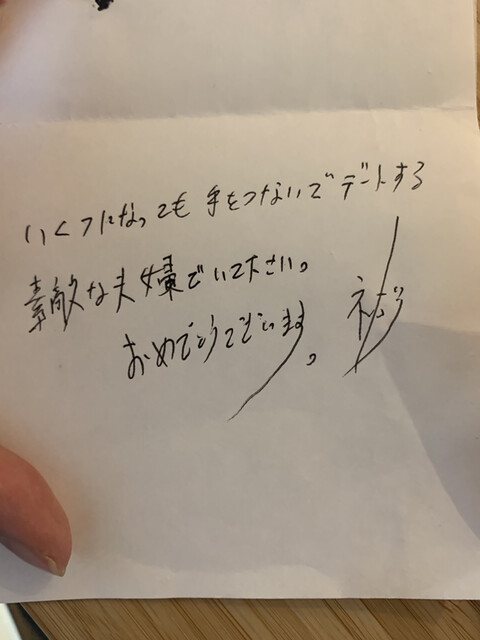 いくつになっても手をつないでデートする
素敵な夫婦でいて下さい。
おめでとうございます。